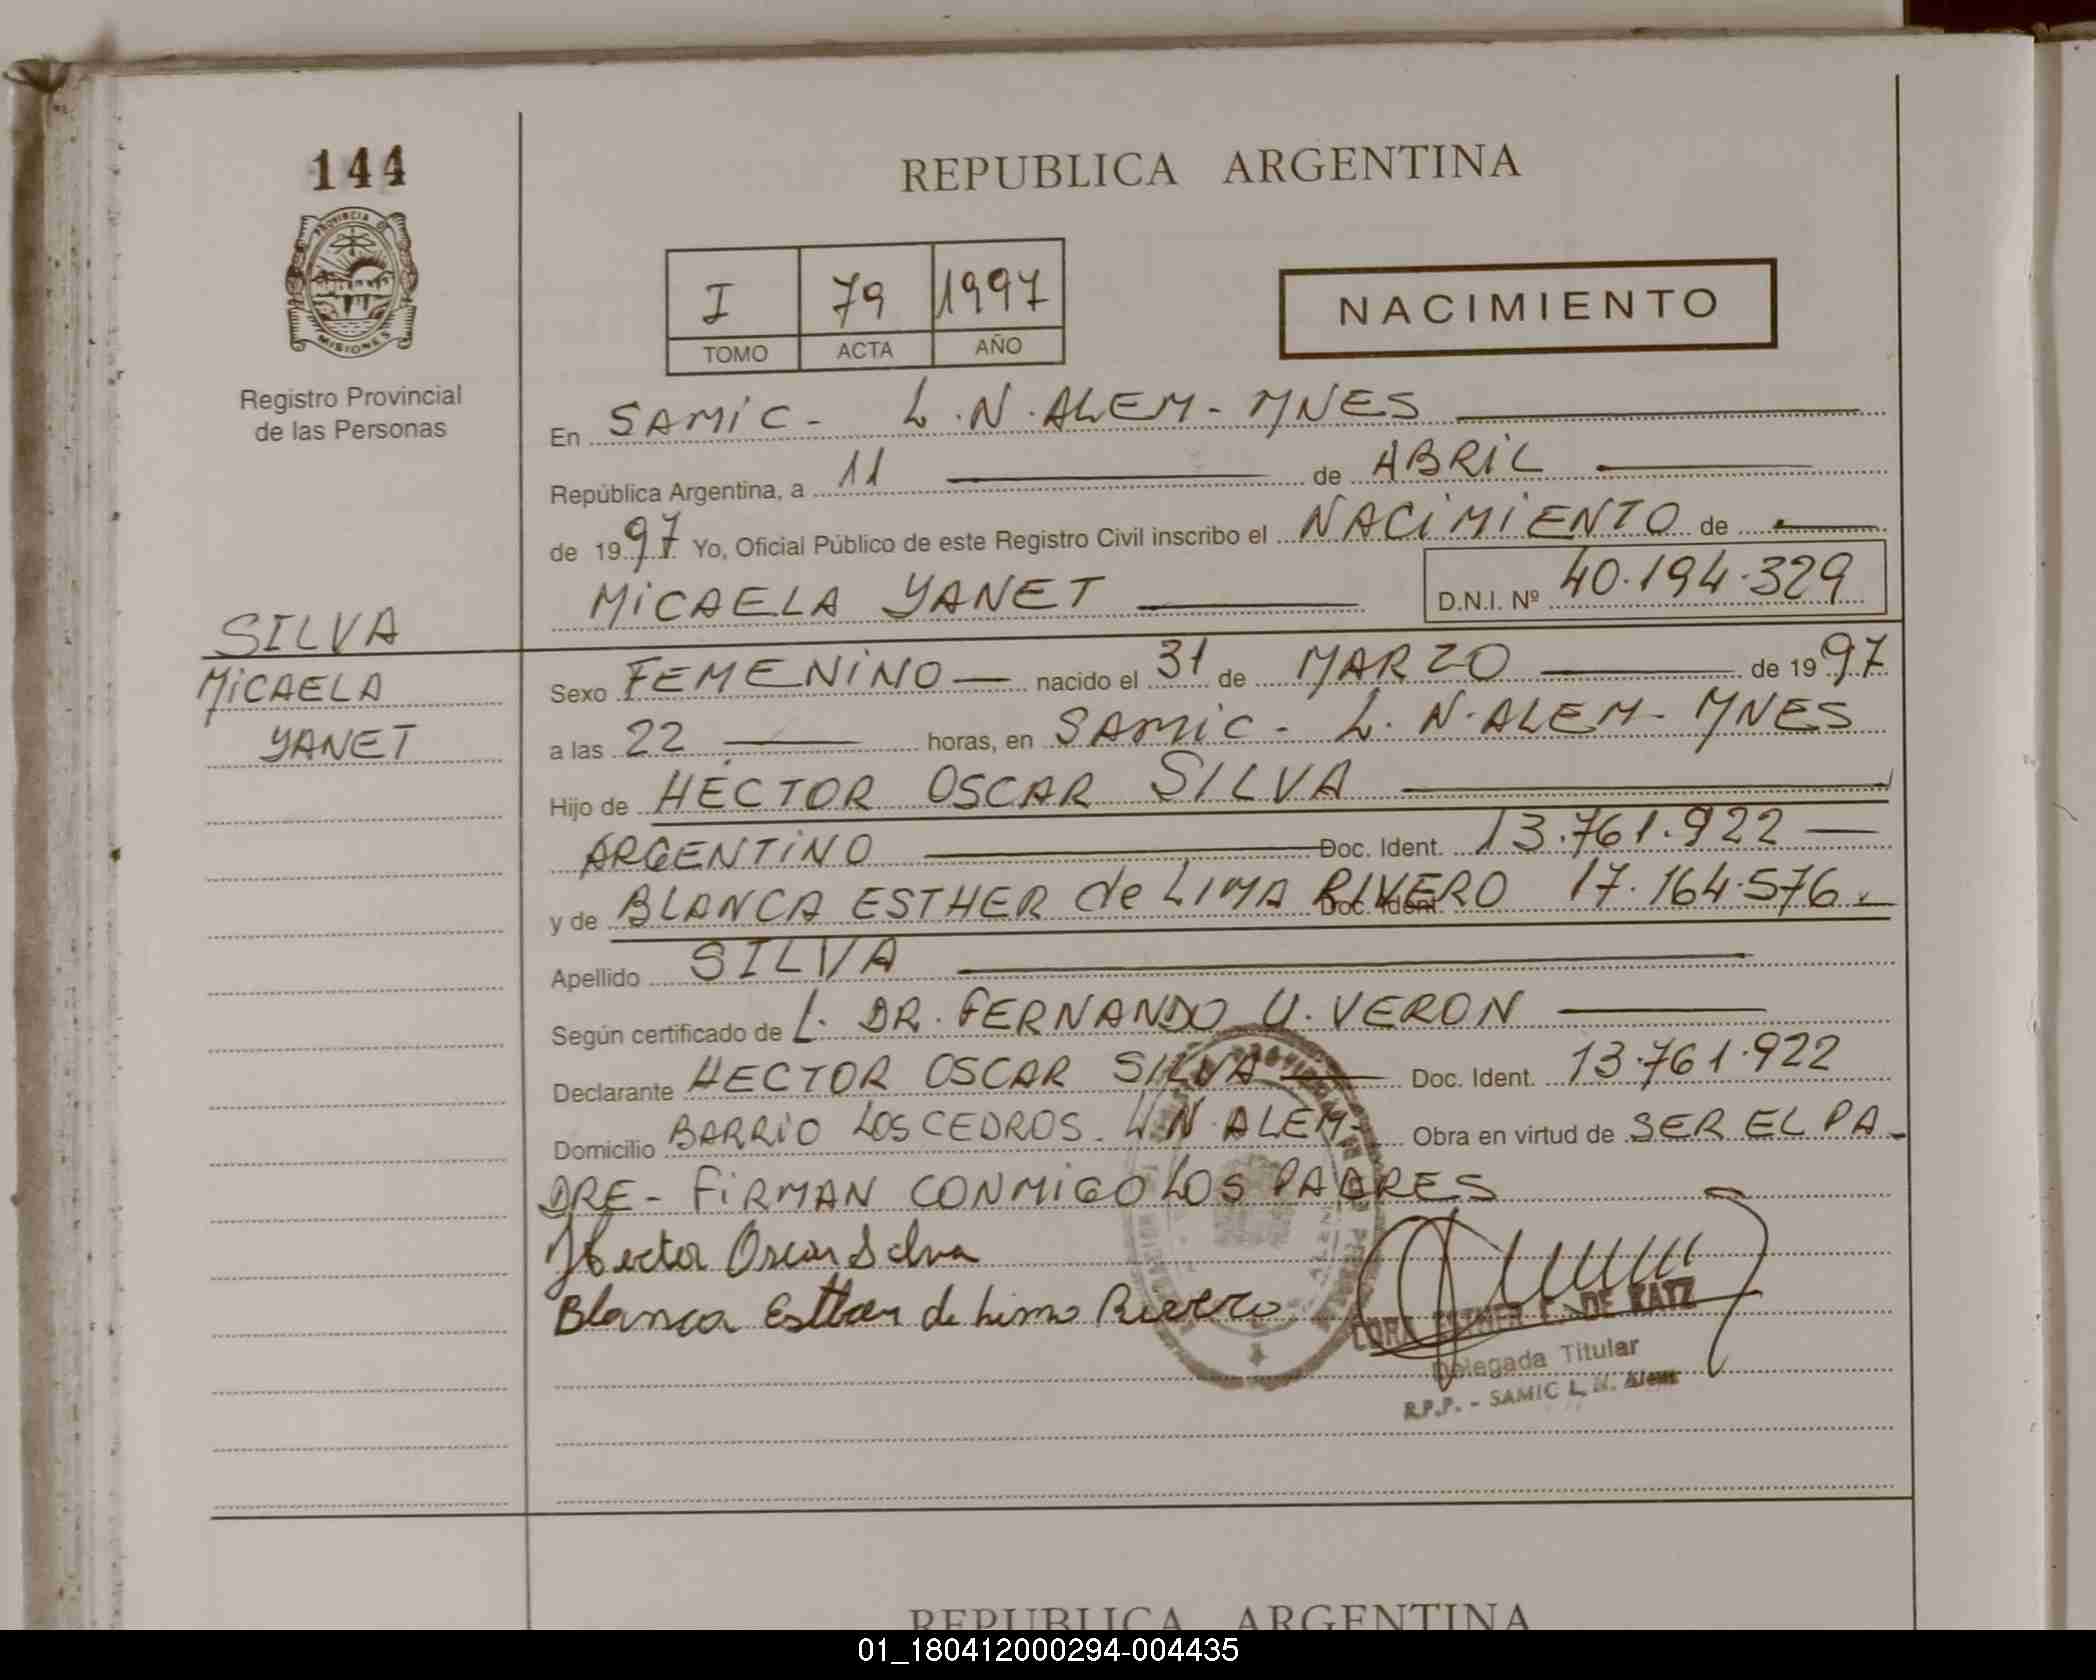 144
REPUBLICA ARGENTINA
PROVINCIA DE
MISIONES
Registro Provincial
de las Personas
I 79 1997
TOMO ACTA AÑO
NACIMIENTO
En SAMIC - L.N.ALEM - MNES
República Argentina, a 11 de ABRIL
de 1997 Yo, Oficial Público de este Registro Civil inscribo el NACIMIENTO de
MICAELA YANET D.N.I. Nº 40.194.329
SILVA
MICAELA
YANET
Sexo FEMENINO nacido el 31 de MARZO de 1997
a las 22 horas, en SAMIC - L. N. ALEM - MNES
Hijo de HECTOR OSCAR SILVA
ARGENTINO Doc. Ident. 13.761.922
y de BLANCA ESTHER de LIMA RIVERO Doc. Ident. 17.164.576
Apellido SILVA
Según certificado de L. DR. FERNANDO U. VERON
Declarante HECTOR OSCAR SILVA Doc. Ident. 13.761.922
Domicilio BARRIO LOS CEDROS - L.N. ALEM - Obra en virtud de SER EL PA-
DRE - FIRMAN CONMIGO LOS PADRES
Hector Oscar Silva
Blanca Esther de Lima Rivero
DE KATZ
Delegada Titular
R.P.P. - SAMIC L. N. Alem
REPUBLICA ARGENTINA
01_180412000294-004435